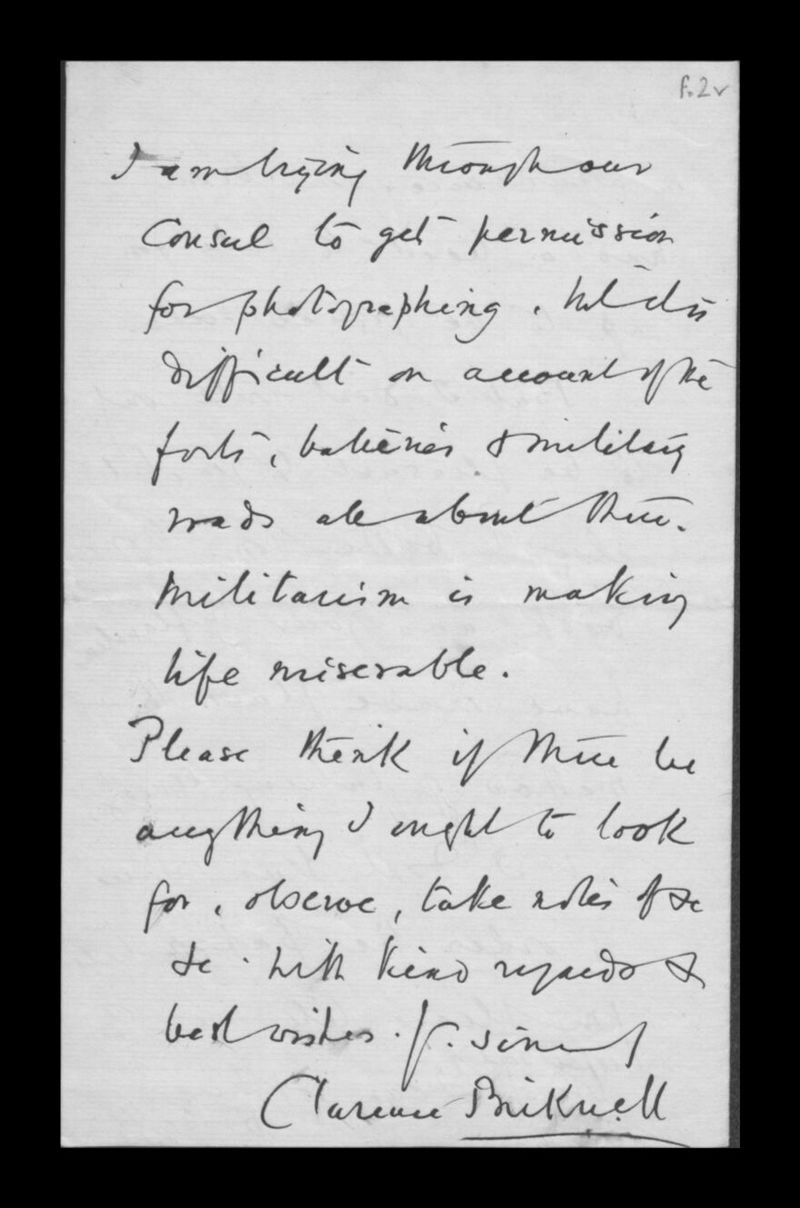 f.2v
I am trying through our
Consul to get permission
for photographing, but it is
difficult on account of the
forts, batteries & military
roads all about there.
Militarism is making
life miserable.
Please think if there be
anything I ought to look
for, observe, take notes of &c
&c. With kind regards &
best wishes. Yr. sincerely
Clarence Bicknell